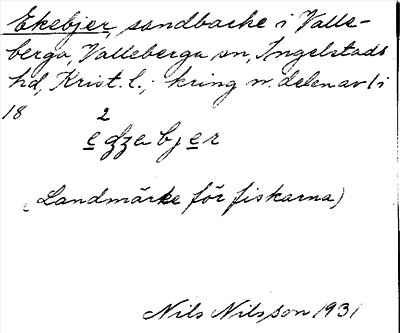 Ekebjer, sandbacke i Valle-
berga, Valleberga sn, Ingelstads
hd, Krist. l.; kring n. delen av li
18 2
bjer
(Landmärke för fiskarna)
Nils Nilsson 1931